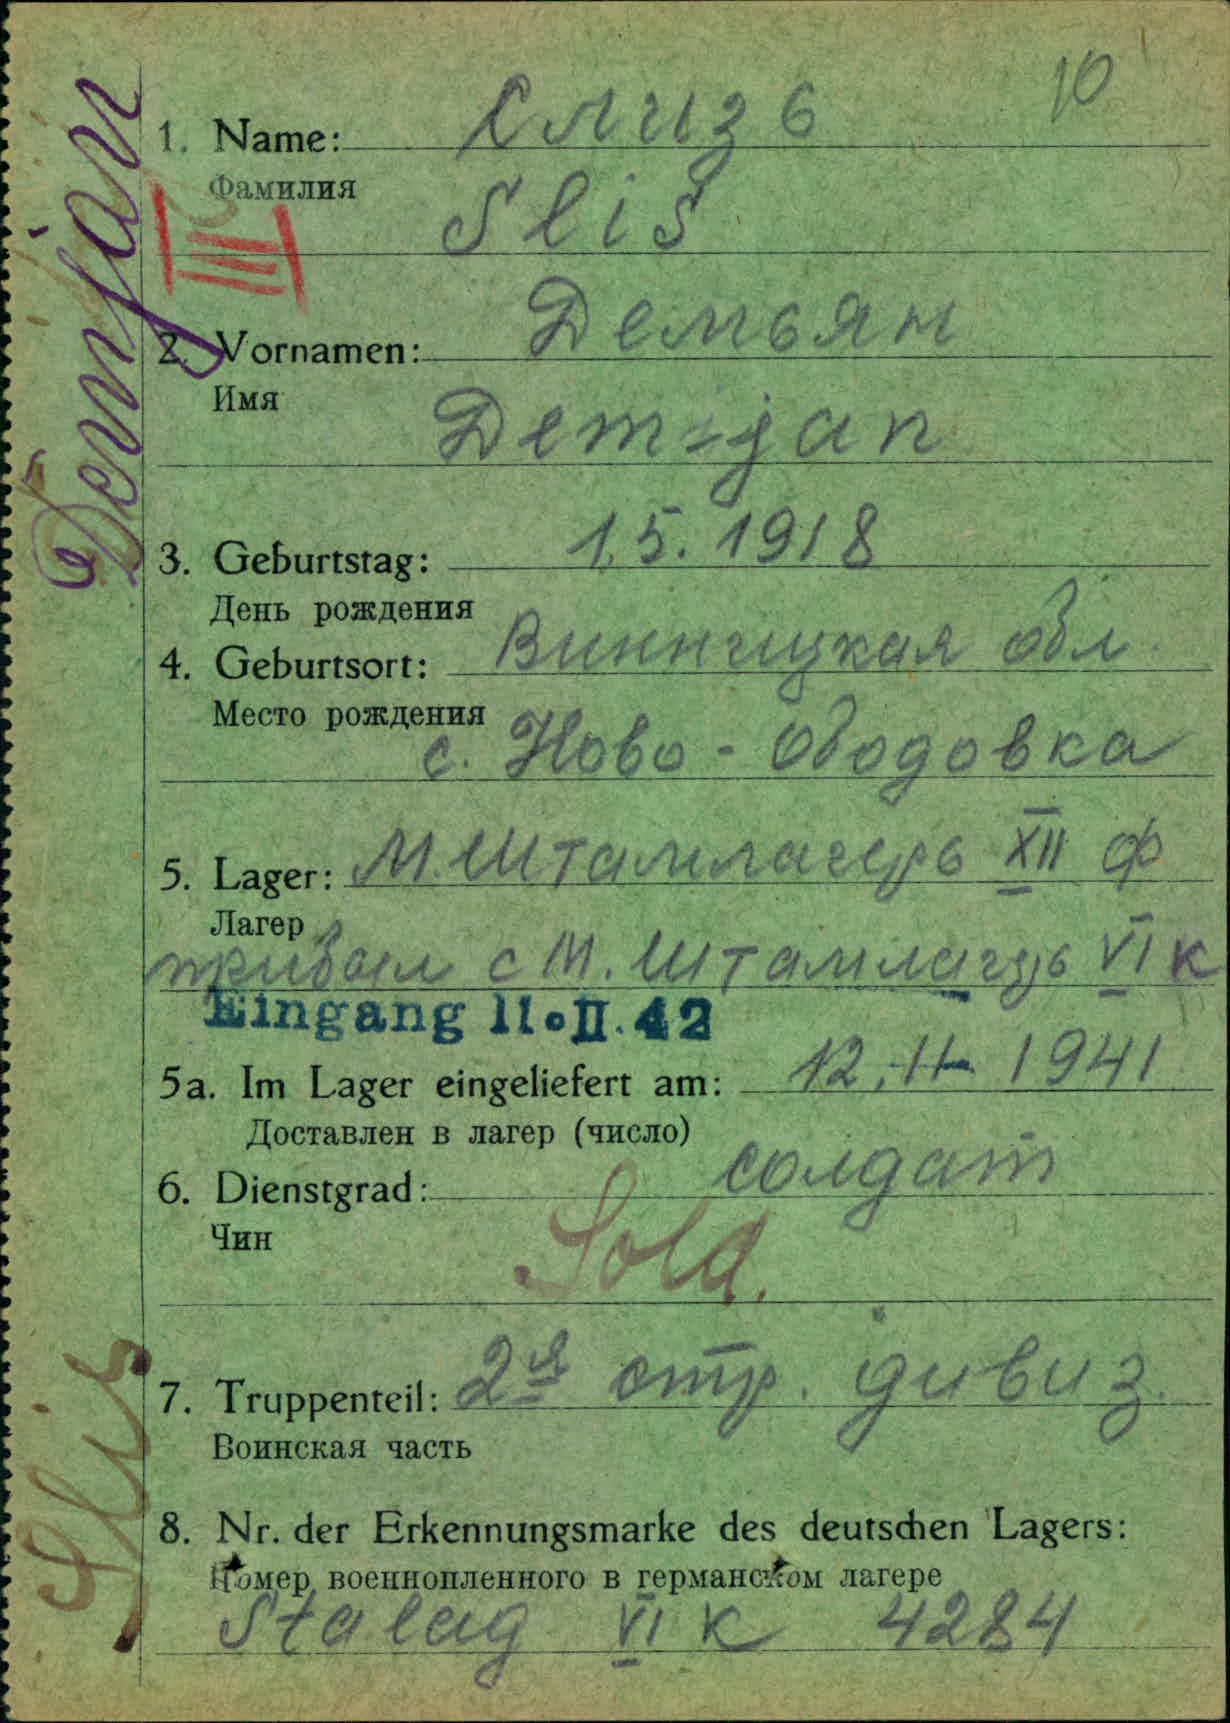 10
1. Name: Слизь
Фамилия
Sliś
III
2. Vornamen: Демьян
Имя
Dem=jan
3. Geburtstag: 1.5.1918
День рождения
4. Geburtsort: Винницкая обл.
Место рождения
с. Ново-Ободовка
5. Lager: М.Шталлагерь XII ф
Лагер
прибыл с М. Шталлагерь VI к
Eingang 11.II.42
5a. Im Lager eingeliefert am: 12.11.1941
Доставлен в лагер (число)
6. Dienstgrad: солдат
Чин
Sold.
7. Truppenteil: 2я стр. дивиз.
Воинская часть
8. Nr. der Erkennungsmarke des deutschen Lagers:
Номер военнопленного в германском лагере
Stalag VI K 4284
Slis
Demjan